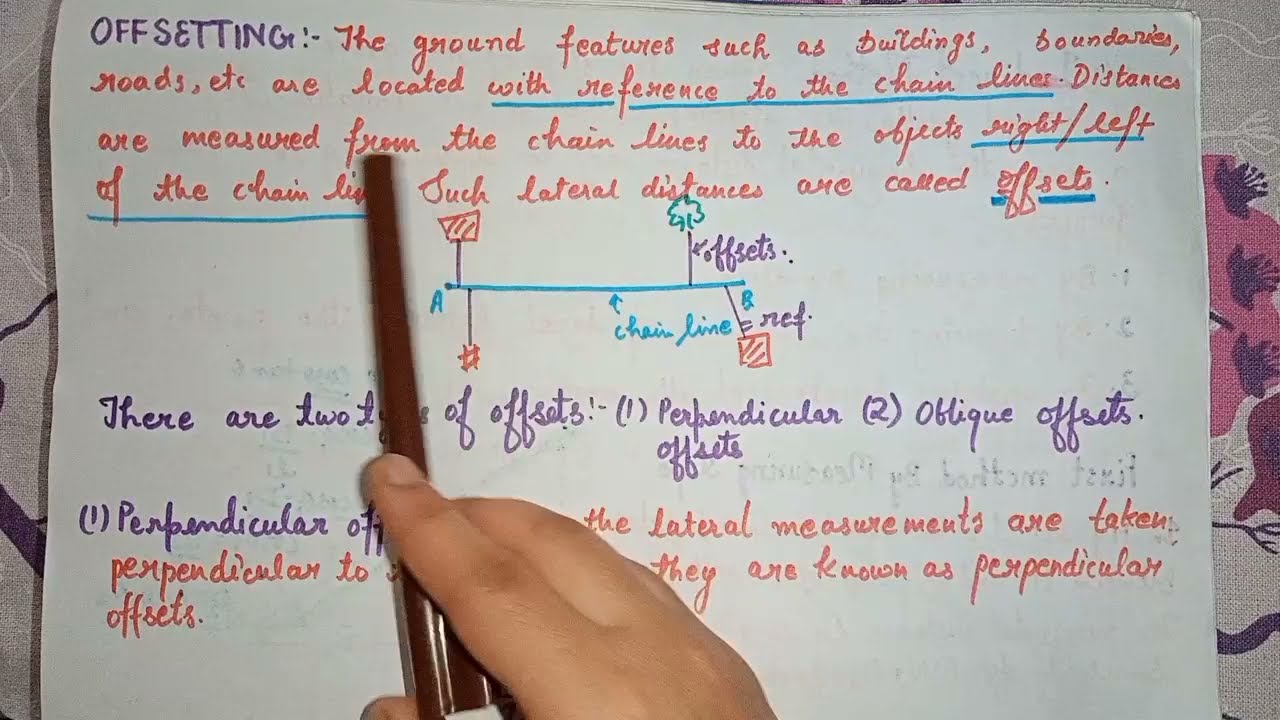 OFFSETTING:- The ground features such as buildings, boundaries,
roads, etc are located with reference to the chain lines. Distances
are measured from the chain lines to the objects right/left
of the chain Such lateral distances are called offsets.
offsets.
A B
chain line = ref.
There are two of offsets:- (1) Perpendicular (2) Oblique offsets.
offsets
(1) Perpendicular the lateral measurements are taken
perpendicular to they are known as perpendicular
offsets.